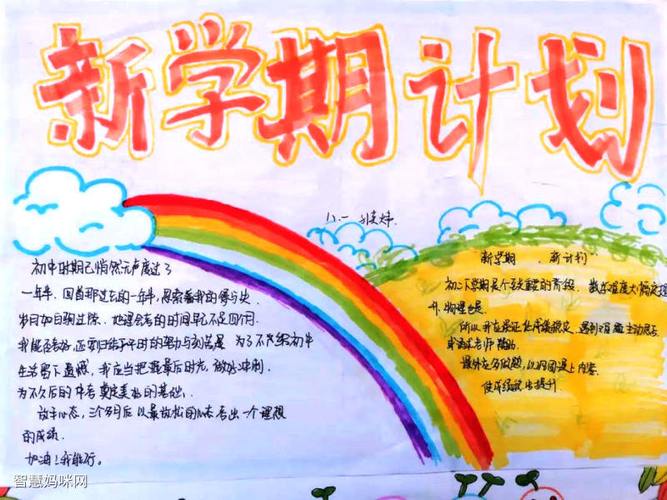 新学期计划
八.一
初中时期已悄然无声度过了
一年半，回首那过去的一年半，思索着我的得与失
岁月如白驹过隙，地理会考的时间早已不足四个月
我能否考好，还要归结于平时的努力与刻苦 为了不给初中
生活留下遗憾，我应当把握最后时光，做好冲刺
为不久后的中考奠定美好的基础.
放平心态，三个月后以最放松的心态考出一个理想
的成绩.
加油！我能行。
新学期 新计划
初二下学期是个至关重要的阶段 数学难度大幅度提
升，物理也是.
所以我应保证 成绩稳定，遇到习题主动思考
或请求老师帮助.
课外应多做题，以巩固课上内容.
使成绩做出提升.
智慧妈咪网